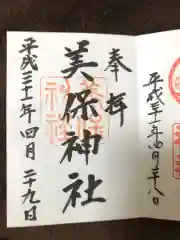 奉拝
美保神社
平成三十一年四月二十九日
平成三十一年四月二十八日